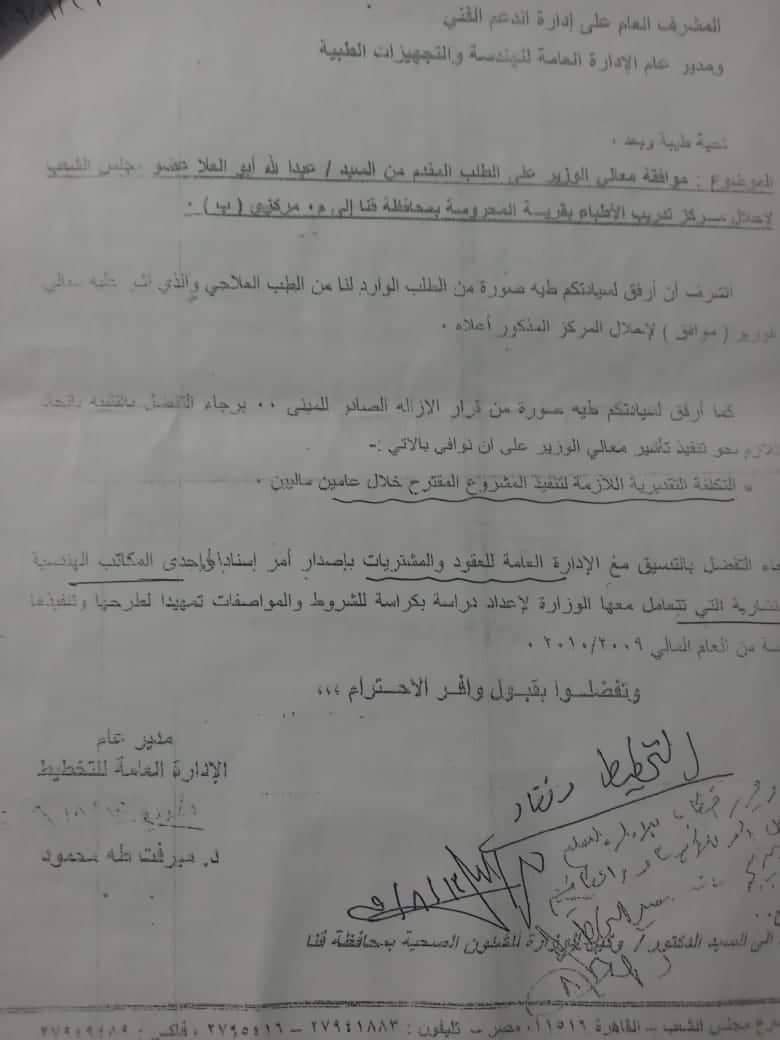 المشرف العام على إدارة الدعم الفني
ومدير عام الإدارة العامة للهندسة والتجهيزات الطبية
تحية طيبة وبعد ٠
الموضوع : موافقة معالي الوزير على الطلب المقدم من السيد / عبدا لله أبو العلا عضو مجلس الشعب
لإحلال مركز تدريب الأطباء بقرية المحروسة بمحافظة قنا إلى م٠ مركزي ( ب ) ٠
اتشرف أن أرفق لسيادتكم طيه صورة من الطلب الوارد لنا من الطب العلاجي والذي اشر عليه معالي
الوزير ( موافق ) لإحلال المركز المذكور أعلاه ٠
كما أرفق لسيادتكم طيه صورة من قرار الازاله الصادر للمبنى ٠٠ برجاء التفضل بالتنبيه باتخاذ
اللازم نحو تنفيذ تأشير معالي الوزير على ان نوافى بالاتي :-
التكلفة التقديرية اللازمة لتنفيذ المشروع المقترح خلال عامين ماليين ٠
التفضل بالتنسيق مع الإدارة العامة للعقود والمشتريات بإصدار أمر إسناد إلى إحدى المكاتب الهندسية
التي تتعامل معها الوزارة لإعداد دراسة بكراسة للشروط والمواصفات تمهيدا لطرحها وتنفيذها
من العام المالي ٢٠١٠/٢٠٠٩ ٠
وتفضلوا بقبول وافر الاحترام ،،،
مدير عام
الإدارة العامة للتخطيط
د. ميرفت طه محمود
التخطيط
الى السيد الدكتور / وكيل الوزارة للشئون الصحية بمحافظة قنا
مجلس الشعب – القاهرة ١١٥١٦ مصر – تليفون : ٢٧٩٤١٨٨٣ – ٢٧٩٥٤١٦ ، فاكس :